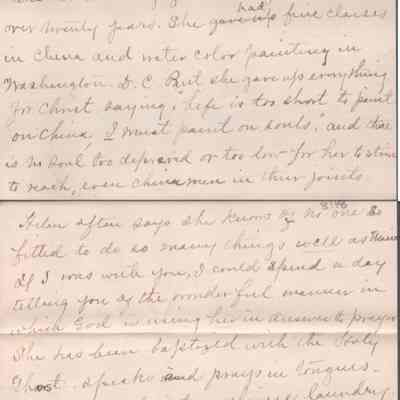 over twenty years. She gave up had five classes
in China and water color painting in
Washington D. C. But she gave up everything
for Christ saying, "Life is too short to paint
on China, I must paint on souls," and there
is no soul too depraved or too low for her to strive
to reach, even Chinamen in their joints.
8148
Helen often says she knows of no one so
fitted to do so many things well as
If I was with you, I could spend a day
telling you of the wonderful manner in
which God is using her in answer to prayer
She has been baptized with the Holy
Ghost. speaks and prays in tongues.
laundry